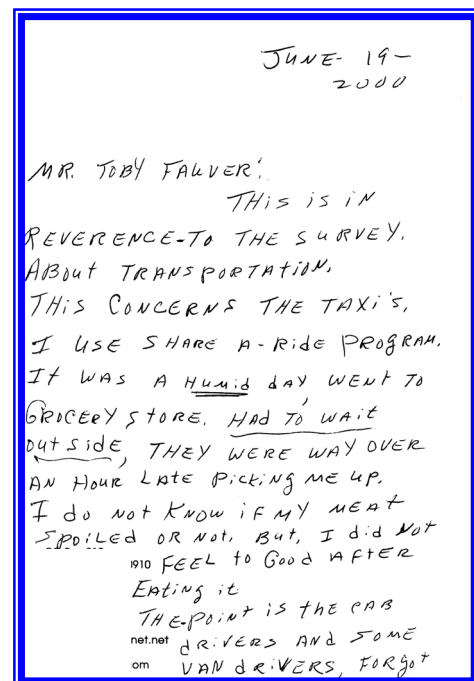 JUNE- 19-
2000
MR. TOBY FAUVER:
THIS is iN
REVERENCE-TO THE SURVEY.
ABOUT TRANSPORTATION,
THIS CONCERNS THE TAXI'S,
I USE SHARE A-RIDE PROGRAM.
IT WAS A HUMID dAY, WENT TO
GROCERY STORE. HAD TO WAIT
OUTSIDE, THEY WERE WAY OVER
AN HOUR LATE PICKING ME UP.
I do NOT KNOW iF MY MEAT
SPOILED OR NOT. BUT, I did NOT
1910 FEEL to Good AFTER
EATING it
THE-POINT is the CAB
net.net dRIVERS AND SOME
om VAN dRIVERS, FORGOT